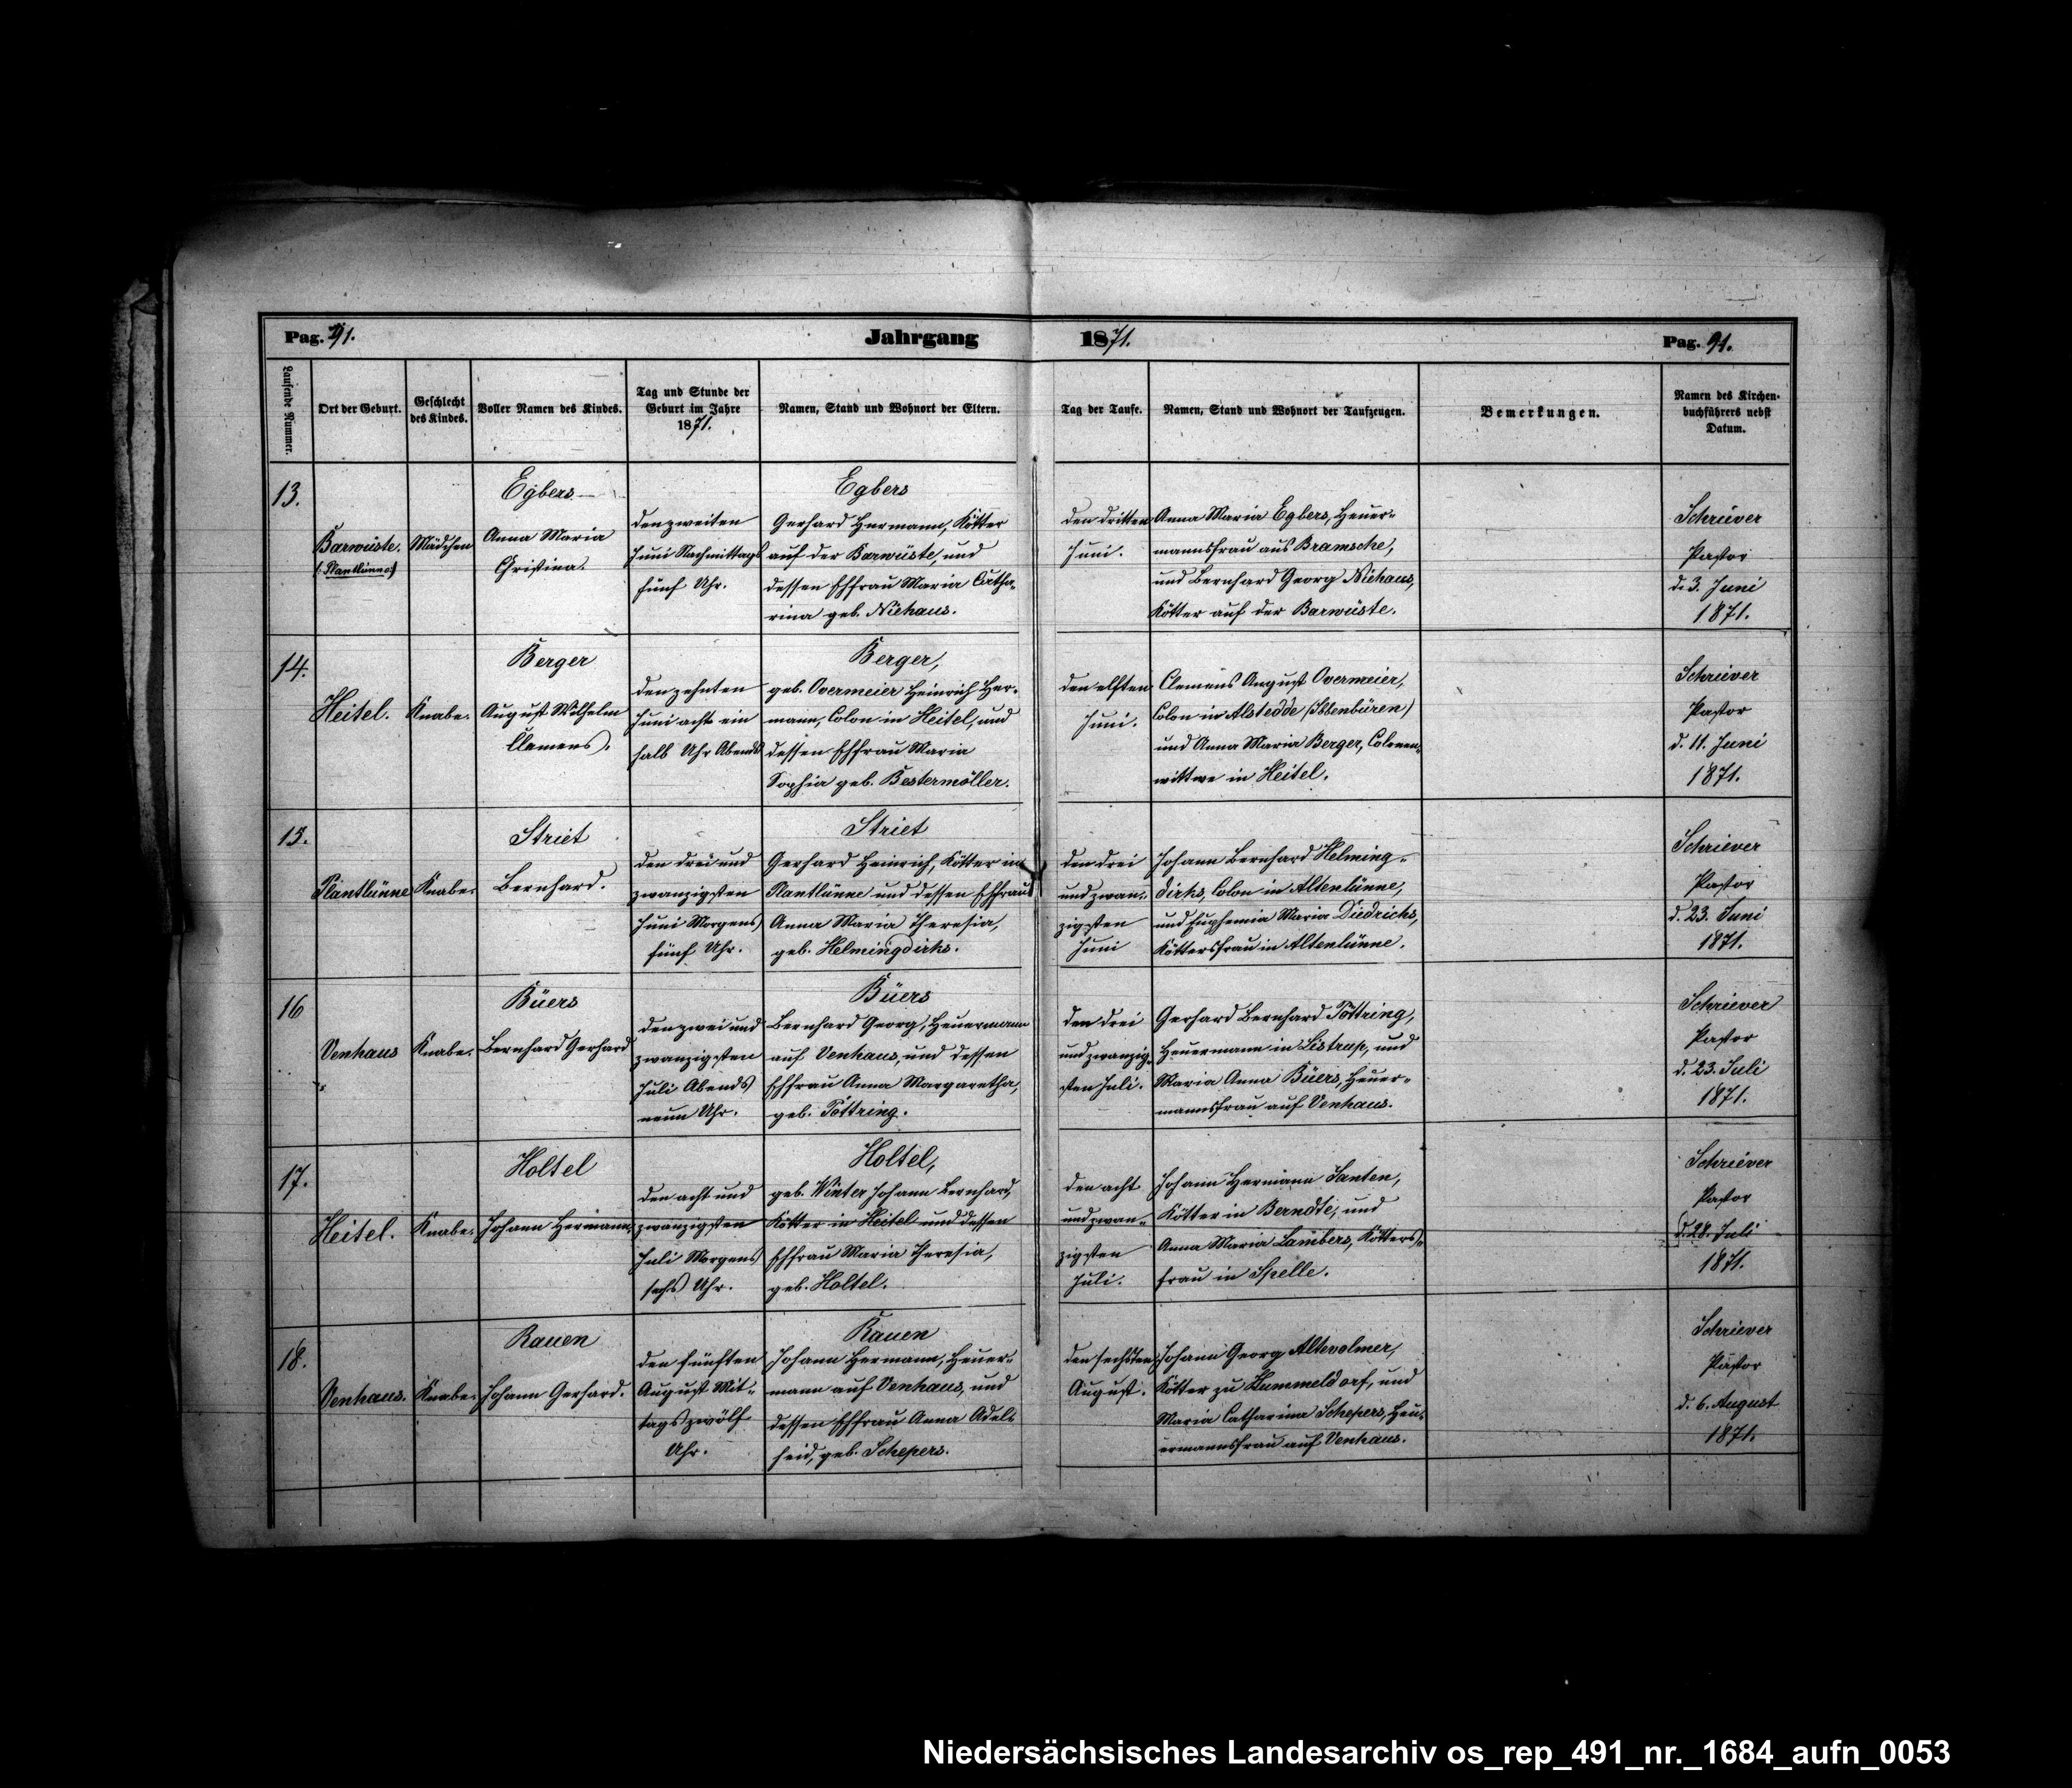 Pag. 91.
Jahrgang
1871.
Pag. 91.
Laufende Nummer.
Ort der Geburt.
Geschlecht
des Kindes.
Voller Namen des Kindes.
Tag und Stunde der
Geburt im Jahre
1871.
Namen, Stand und Wohnort der Eltern.
Tag der Taufe.
Namen, Stand und Wohnort der Taufzeugen.
Bemerkungen.
Namen des Kirchen-
buchführers nebst
Datum.
13.
Barwüste.
(: Plantlünne :)
Mädchen
Egbers
Anna Maria
Christina.
den zweiten
Juni Nachmittags
fünf Uhr.
Egbers
Gerhard Hermann, Kötter
auf der Barwüste, und
dessen Ehefrau Maria Catha-
rina geb. Niehaus.
den dritten
Juni.
Anna Maria Egbers, Heuer-
mannsfrau aus Bramsche,
und Bernhard Georg Niehaus,
Kötter auf der Barwüste.
Schriever
Pastor
d. 3. Juni
1871.
14.
Heitel.
Knabe.
Berger
August Wilhelm
Clemens.
den zehnten
Juni acht ein
halb Uhr Abends
Berger,
geb. Overmeier Heinrich Her-
mann, Colon in Heitel, und
dessen Ehefrau Maria
Sophia geb. Bestermöller.
den elften
Juni.
Clemens August Overmeier,
Colon in Alstedde (Ibbenbüren)
und Anna Maria Berger, Colonen-
wittwe in Heitel.
Schriever
Pastor
d. 11. Juni
1871.
15.
Plantlünne
Knabe.
Striet
Bernhard.
den drei und
zwanzigsten
Juni Morgens
fünf Uhr.
Striet
Gerhard Heinrich, Kötter in
Plantlünne und dessen Ehefrau
Anna Maria Theresia,
geb. Helmingdirks.
den drei
und zwan-
zigsten
Juni
Johann Bernhard Helming-
dirks, Colon in Altenlünne,
und Euphemia Maria Diedrichs,
Köttersfrau in Altenlünne.
Schriever
Pastor
d. 23. Juni
1871.
16
Venhaus
Knabe.
Büers
Bernhard Gerhard
den zwei und
zwanzigsten
Juli Abends
neun Uhr.
Büers
Bernhard Georg, Heuermann
auf Venhaus, und dessen
Ehefrau Anna Margaretha,
geb. Töttring.
den drei
und zwanzig-
sten Juli.
Gerhard Bernhard Töttring,
Heuermann in Listrup, und
Maria Anna Büers, Heuer-
mannsfrau auf Venhaus.
Schriever
Pastor
d. 23. Juli
1871.
17.
Heitel.
Knabe.
Holtel
Johann Hermann.
den acht und
zwanzigsten
Juli Morgens
sechs Uhr.
Holtel,
geb. Winter Johann Bernhard,
Kötter in Heitel und dessen
Ehefrau Maria Theresia,
geb. Holtel.
den acht
und zwan-
zigsten
Juli.
Johann Hermann Santen,
Kötter in Berndte, und
Anna Maria Lambers, Kötters-
frau in Spelle.
Schriever
Pastor
d. 28. Juli
1871.
18.
Venhaus.
Knabe.
Rauen
Johann Gerhard.
den fünften
August Mit-
tags zwölf
Uhr.
Rauen
Johann Hermann, Heuer-
mann auf Venhaus, und
dessen Ehefrau Anna Adel-
heid, geb. Schepers.
den sechsten
August.
Johann Georg Altevolmer,
Kötter zu Hummeldorf, und
Maria Catharina Schepers, Heu-
ermannsfrau auf Venhaus.
Schriever
Pastor
d. 6. August
1871.
Niedersächsisches Landesarchiv os_rep_491_nr._1684_aufn_0053